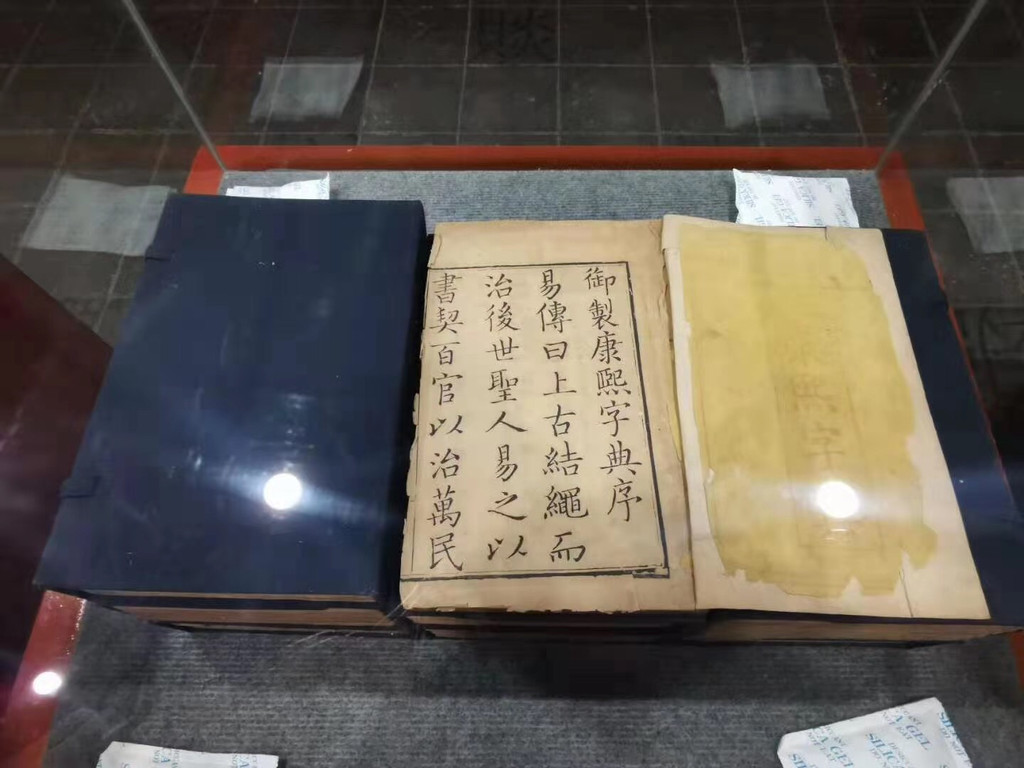 御製康熙字典序
易傳曰上古結繩而
治後世聖人易之以
書契百官以治萬民
熙字
SILICA GEL